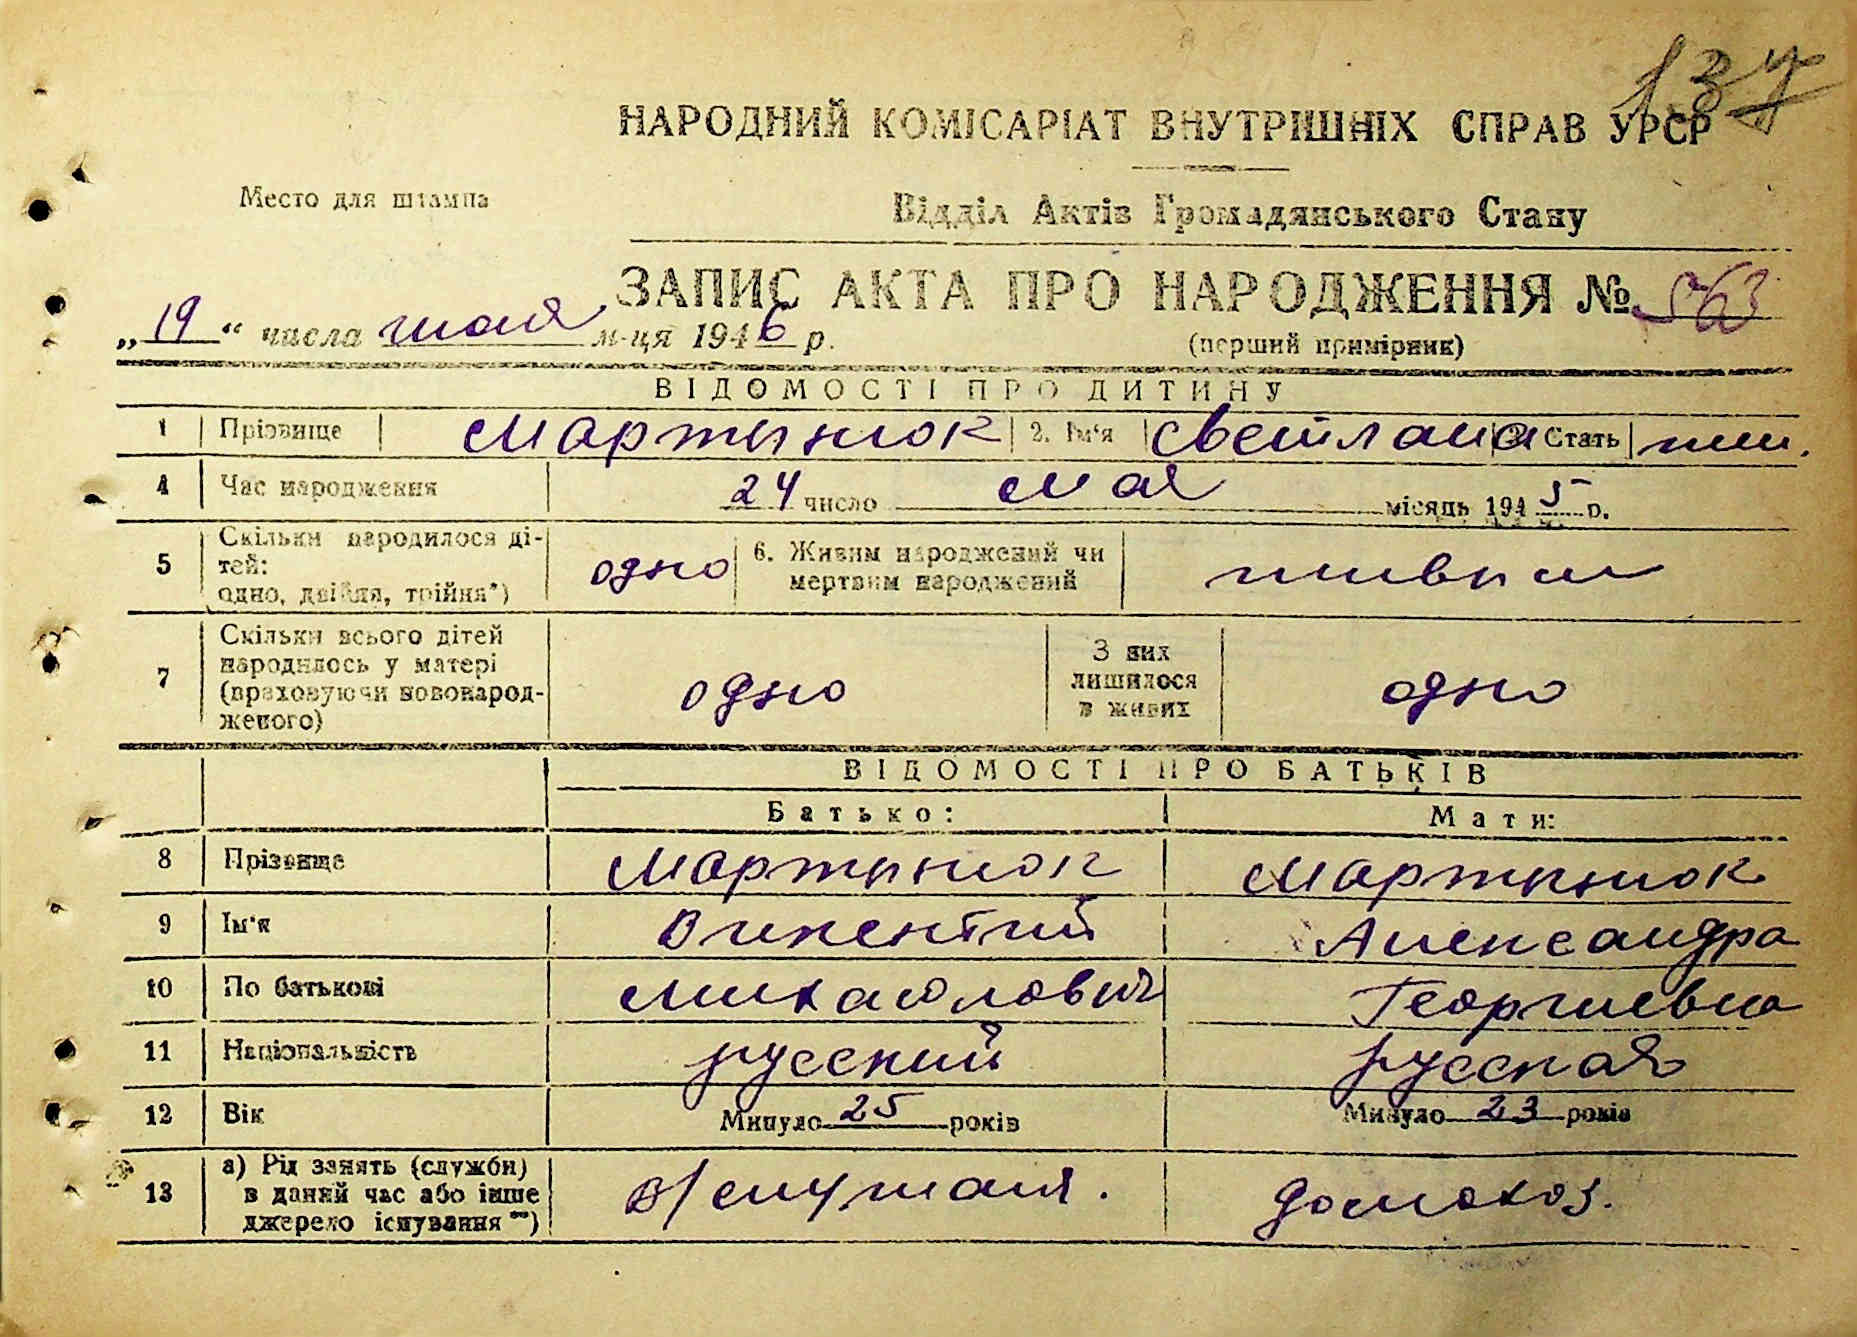 137
НАРОДНИЙ КОМІСАРІАТ ВНУТРІШНІХ СПРАВ УРСР
Место для штампа
Відділ Актів Громадянського Стану
ЗАПИС АКТА ПРО НАРОДЖЕННЯ № 563
„19“ числа мая м-ця 1946 р.
(перший примірник)
ВІДОМОСТІ ПРО ДИТИНУ
1 Прізвище Мартынюк 2. Ім'я Светлана 3 Стать жен.
4 Час народження 24 число мая місяць 1945 р.
5 Скільки народилося ді-
тей:
одно, двійня, трійня*) одно 6. Живим народжений чи
мертвим народжений живым
7 Скільки всього дітей
народилось у матері
(враховуючи новонарод-
женого) одно З них
лишилося
в живих одно
ВІДОМОСТІ ПРО БАТЬКІВ
Батько: Мати:
8 Прізвище Мартынюк Мартынюк
9 Ім'я Викентий Александра
10 По батькові Михайлович Георгиевна
11 Національність русский русская
12 Вік Минуло 25 років Минуло 23 років
13 а) Рід занять (служби)
в даний час або інше
джерело існування **) в/служащ. домохоз.